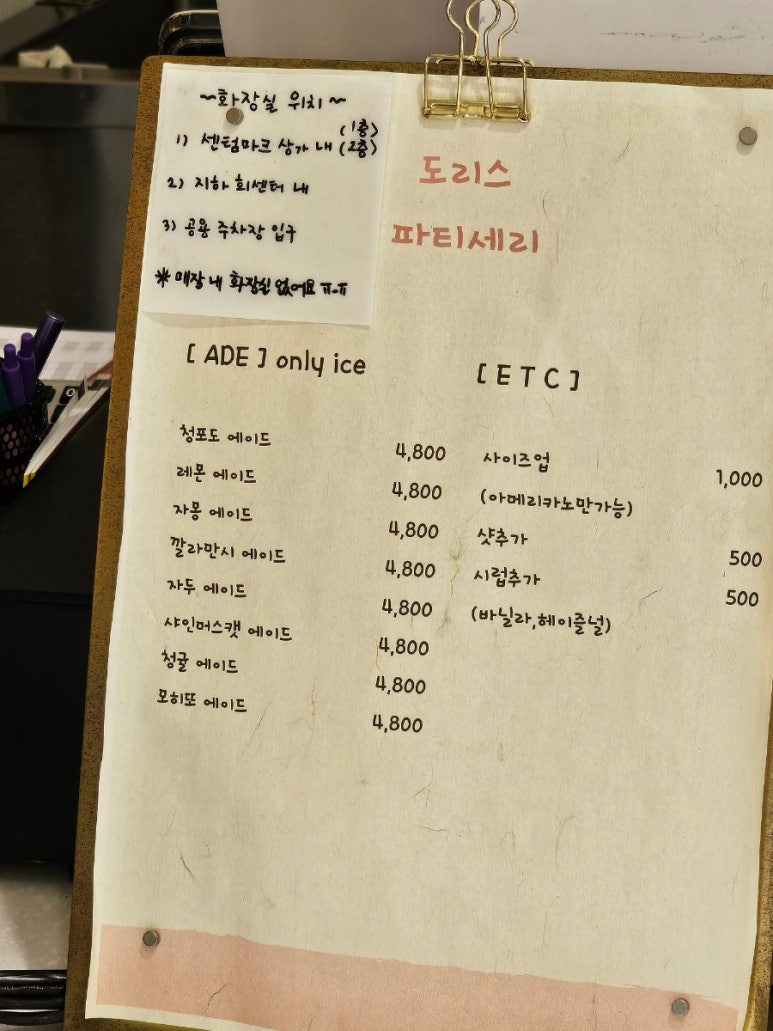 ~화장실 위치~
1) 센텀마크 상가 내 (1층)
(2층)
2) 지하 회센터 내
3) 공용 주차장 입구
* 매장 내 화장실 없어요 ㅠ.ㅠ
도리스
파티세리
[ ADE ] only ice
청포도 에이드 4,800
레몬 에이드 4,800
자몽 에이드 4,800
깔라만시 에이드 4,800
자두 에이드 4,800
샤인머스캣 에이드 4,800
청귤 에이드 4,800
모히또 에이드 4,800
[ E T C ]
사이즈업 1,000
(아메리카노만가능)
샷추가 500
시럽추가 500
(바닐라,헤이즐널)